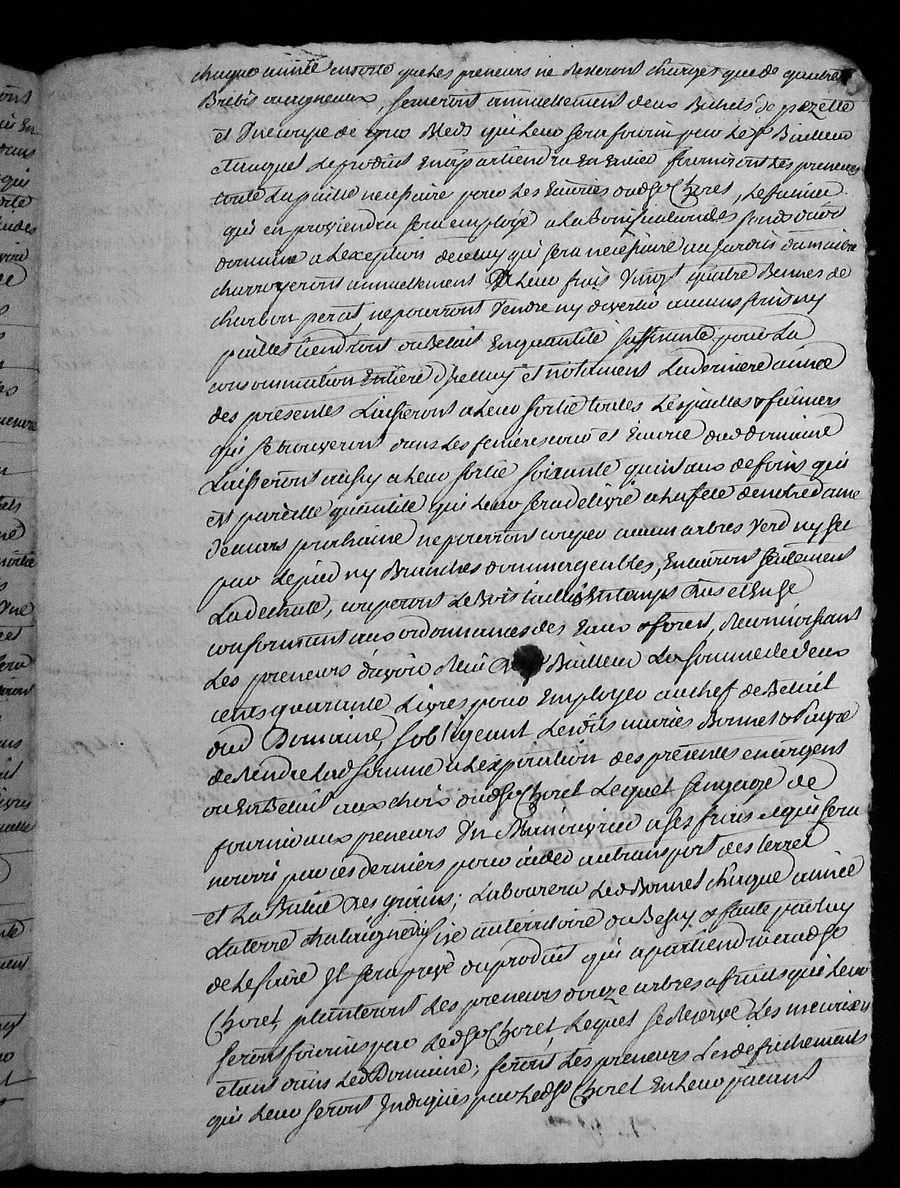 chaque année ensorte que les preneurs ne resteront chargés que de quatre
Brebis ou agneaux, semeront annuellement deux Bichets de pezette
et une coupe de gros Bleds qui leur sera fourni par Led Sr Bailleur
et auquel Le produit En apartiendra En Entier fourniront Les preneurs
toute La paille necessaire pour Les Ecuries dud Sr Choret, Le fumier
qui en proviendra sera employé a La Bonification des fonds dud
domaine a L'exception de celuy qui sera necessaire au Jardin du maitre
charroyeront annuellement a Leur frais vingt quatre Bennes de
charbon perat, ne pourront vendre ny divertir aucuns foins ny
pailles tiendront du Betail En quantité suffisante pour La
consommation Entiere d'yceluy et notament La derniere année
des presentes Laisseront a Leur sortie toutes Les pailles & fumiers
qui se trouveront dans Les fenieres cour et Ecurie dud domaine
Laisseront aussy a Leur sortie soixante quintaux de foins qui
est pareille quantité qui Leur sera delivré a La fete de notre dame
de mars prochaine ne pourront couper aucun arbres verd ny sec
par Le pied ny Branches dommergeables, En auront seulement
La dechute, couperont Le Bois taillis En temps dus et En se
conformant aux ordonnances des Eaux & forets, Reconnoissant
Les preneurs d'avoir Recu Bailleur La somme de deux
cents quarante Livres pour Employer au chef de Betail
dud Domaine, s'obligeant Lesdits mariés Bonnet &
de Rendre Lad somme a L'expiration des presentes en argent
ou En Betail aux choix dud Sr Choret Lequel s'engage de
fournir aux preneurs Un Manouvrier a ses frais & qui sera
nourri par ces derniers pour aider au transport des terres
et La Batue des grains; Labourera Led Bonnet chaque année
La terre sise au territoire du & faute par luy
de Le faire Il sera privé du produit qui apartiendra aud Sr
Choret, planteront Les preneurs douze arbres a fruits qui Leur
seront fournis par Led Sr Choret, Lequel se Reserve Les meuriers
etant dans Led Domaine; feront Les preneurs Les defrichements
qui Leur seront Indiqués par Led Sr Choret En Leur payant